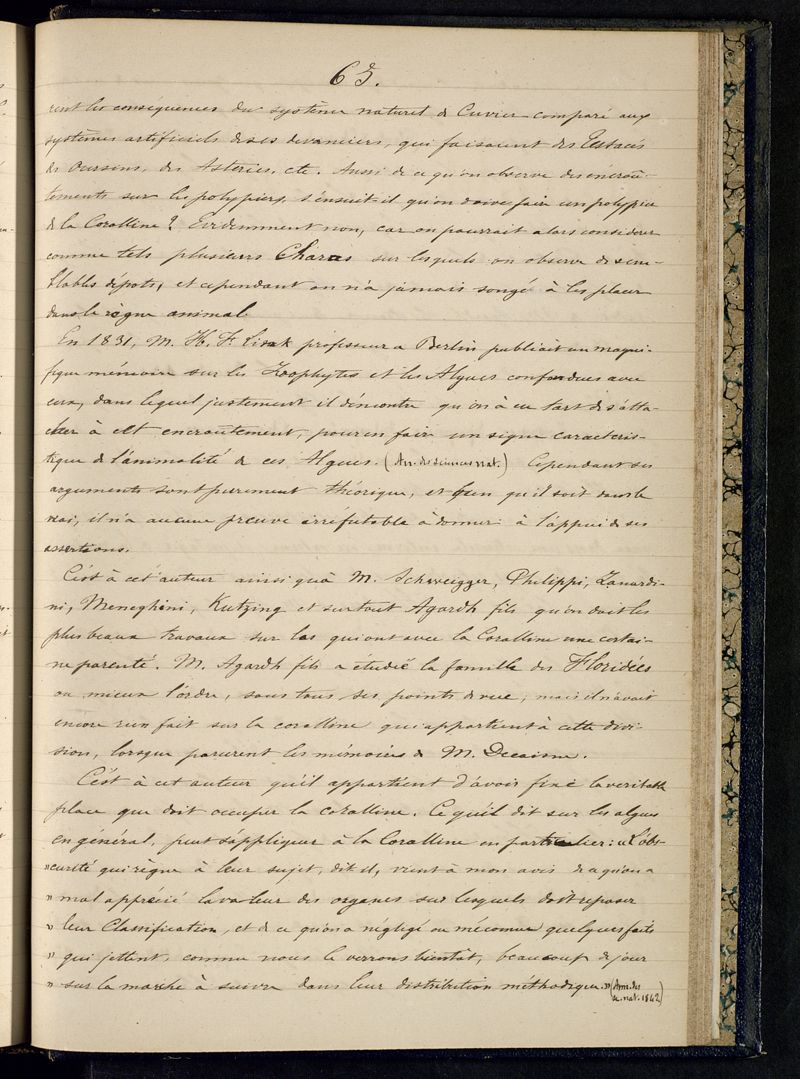 65.
rent les conséquences du système naturel de Cuvier comparé aux
systèmes artificiels de ses devanciers, qui faisaient des Testacés
des oursins, des Asteries, etc. Aussi de ce qu'on observe des encroû-
tements sur les polypiers, s'ensuit-il qu'on doive faire un polypier
de la Coralline? Evidemment non, car on pourrait alors considérer
comme tels plusieurs Charas sur lesquels on observe de sem-
blables dépots, et cependant on n'a jamais songé à les placer
dans le règne animal.
En 1831, M. H. F. Link professeur a Berlin publiait un magni-
fique mémoire sur les Zoophytes et les Algues confondues avec
eux, dans lequel justement il démontre qu'on à eu tort de s'atta-
cher à cet encroûtement, pour en faire un signe caracteris-
tique de l'animalité de ces Algues. (Ann. des sciences nat.) Cependant ses
arguments sont purement théorique, et bien qu'il soit dans le
vrai, il n'a aucune preuve irréfutable à donner à l'appui de ses
assertions.
C'est à cet auteur ainsi quà M. Schweigger, Philippi, Zanardi-
ni, Meneghini, Kutzing et surtout Agardh fils qu'on doit les
plus beaux travaux sur las qui ont avec la Coralline une certai-
ne parenté. M. Agardh fils a étudié la famille des Floridées
ou mieux l'ordre, sous tous ses points de vue; mais il n'avait
encore rien fait sur la coralline qui appartient à cette divi-
sion, lorsque parurent les mémoires de M. Decaisne.
C'est à cet auteur qu'il appartient d'avoir fixé la veritable
place que doit occuper la coralline. Ce qu'il dit sur les algues
en général, peut s'appliquer à la Coralline en particulier: « L'obs-
» curité qui règne à leur sujet, dit il, vient à mon avis de ce qu'on a
» mal apprécié la valeur des organes sur lesquels doit reposer
» leur Classification, et de ce qu'on a négligé ou méconnu quelques faits
» qui jettent, comme nous le verrons bientôt, beaucoup de jour
» sur la marche à suivre dans leur distribution méthodique. » (Ann. des
sc. nat. 1842)